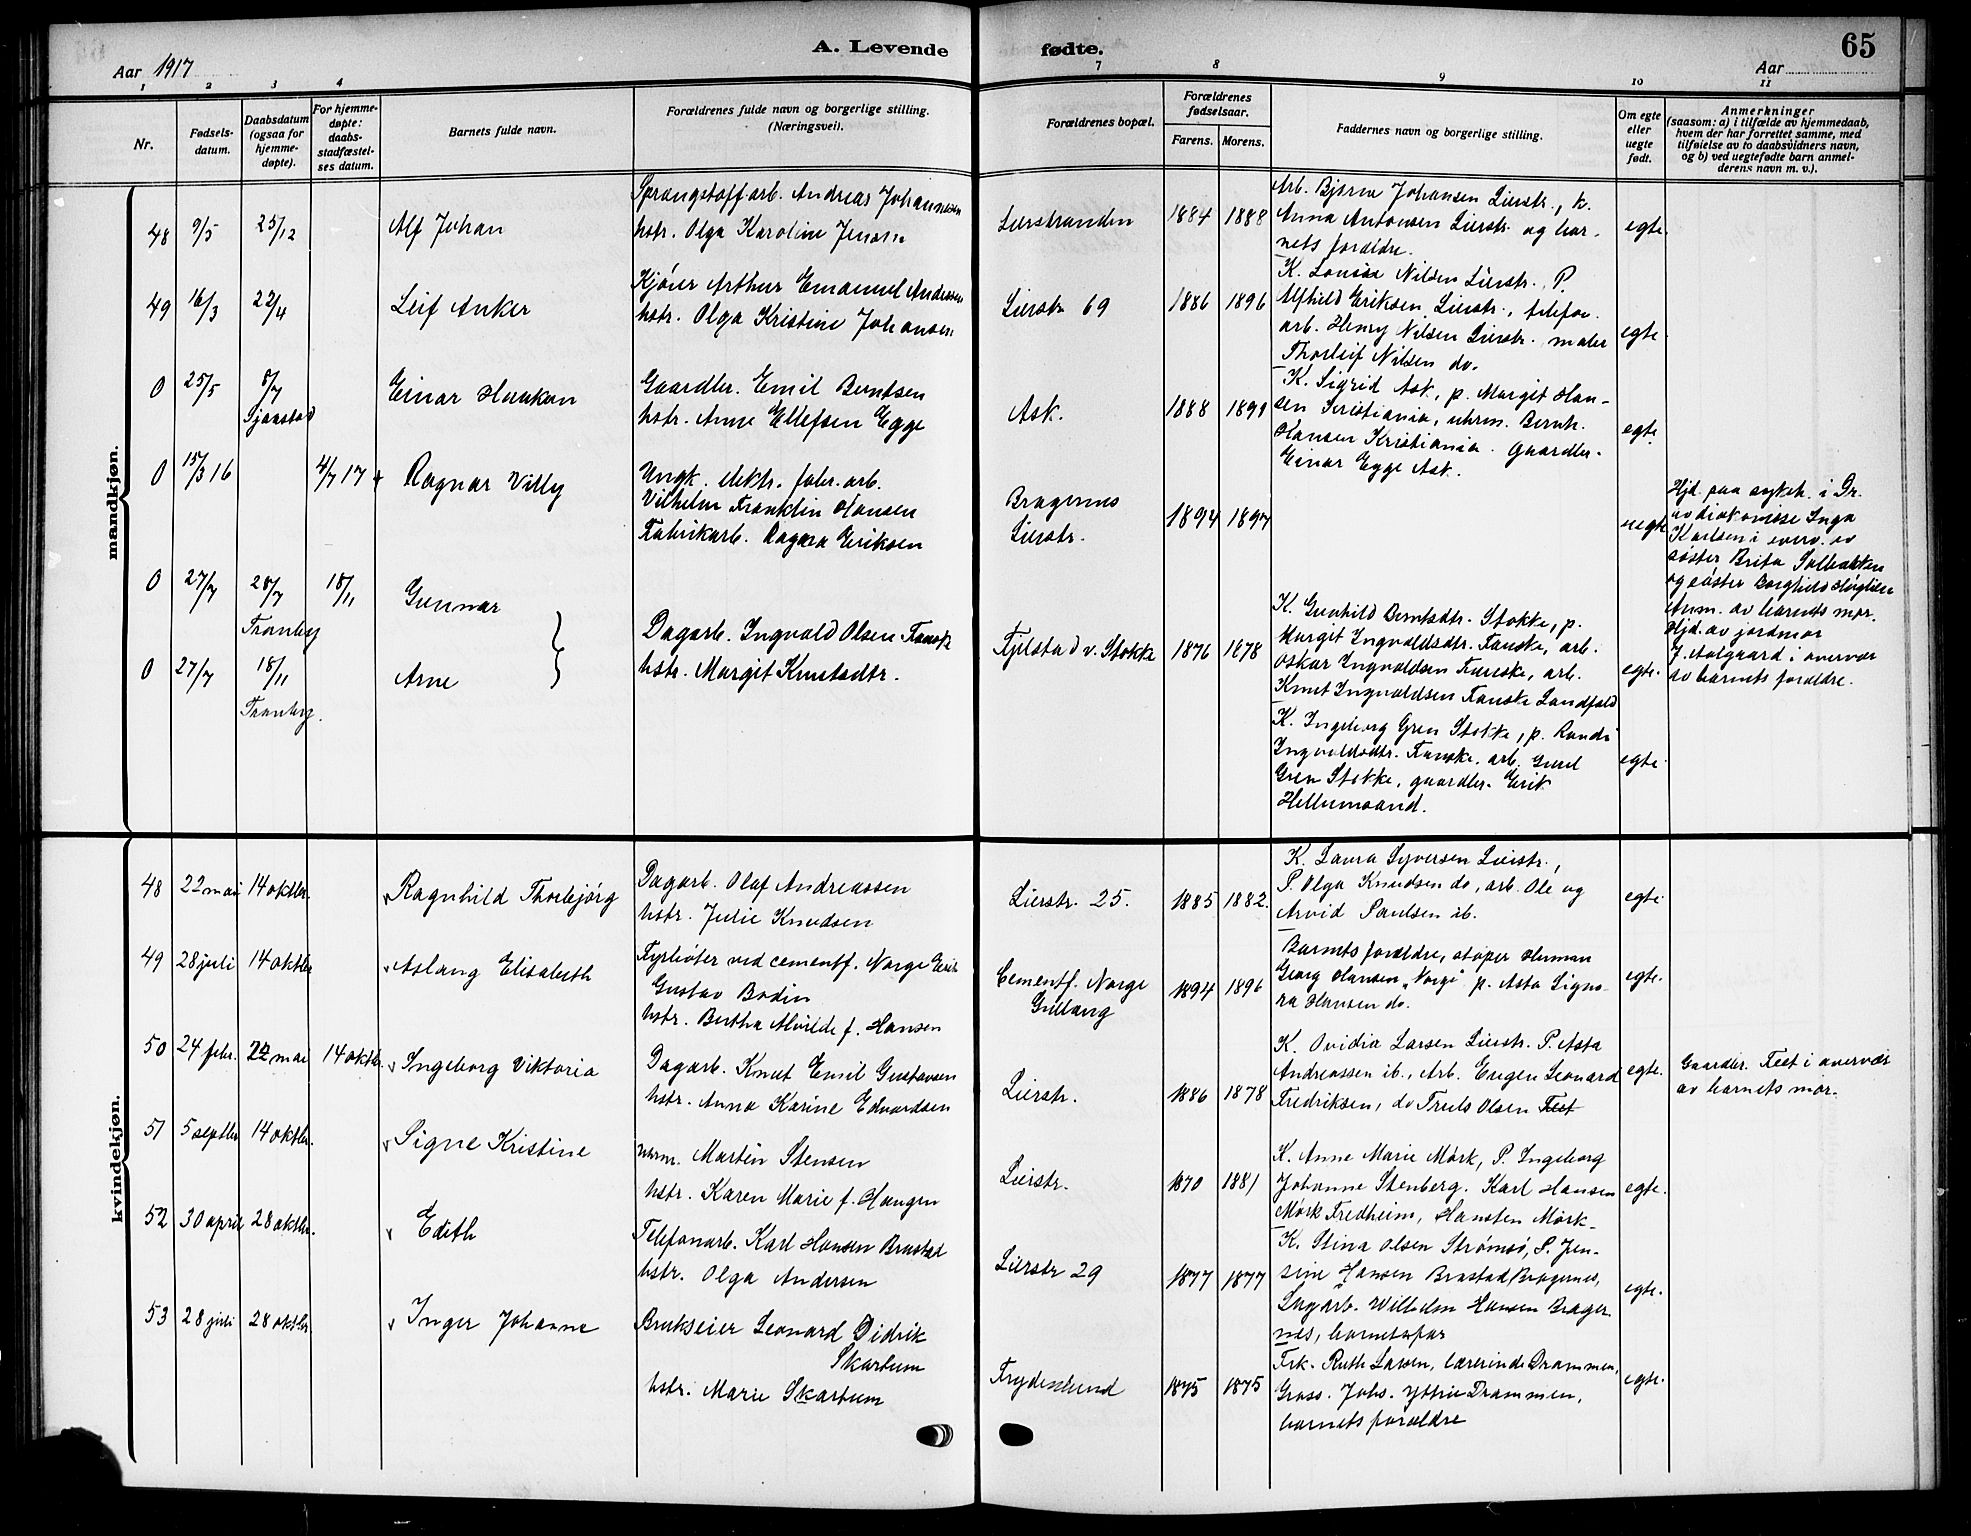 A. Levende
fødte.
65
Aar 1917
Aar
1 2 3 4 7 8 9 10 11
Nr.
Fødsels-
datum.
Daabsdatum
(ogsaa for
hjemme-
døpte).
For hjemme-
døpte:
daabs-
stadfæstel-
ses datum.
Barnets fulde navn.
Forældrenes fulde navn og borgerlige stilling.
(Næringsvei).
Forældrenes bopæl.
Forældrenes
fødselsaar.
Farens. Morens.
Faddernes navn og borgerlige stilling.
Om egte
eller
uegte
født.
Anmerkninger
(saasom: a) i tilfælde av hjemmedaab,
hvem der har forrettet samme, med
tilføielse av to daabsvidners navn,
og b) ved uegtefødte barn anmel-
derens navn m. v.).
mandkjøn.
48 9/5 25/12 Alf Johan
Sprængstoffarb. Andreas Johannesen
hstr. Olga Karoline Jensen
Lierstranden 1884 1888
Arb. Bjarne Johansen Lierstr., k.
Anna Antonsen Lierstr. og bar-
nets forældre.
egte.
49 16/3 22/4 Leif Anker
Kjører Arthur Emanuel Andersen
hstr. Olga Kristine Johansen
Lierstr. 69 1886 1896
K. Lovise Nilsen Lierstr., P.
Alfhild Eriksen, Lierstr., telefon-
arb. Henry Nilsen Lierstr. maler
Thorleif Nilsen do.
egte.
0 25/5 8/7
Sjaastad
Einar Haakon
Gaardbr. Emil Berntsen
hstr. Anne Ellefsen Egge
Ask. 1888 1899
K. Sigrid Ask, p. Margit Han-
sen Kristiania, uhrm. Bernh.
Hansen Kristiania. Gaardbr.
Einar Egge Ask.
egte.
0 15/3 16 4/7 17 + Ragnar Villy
Ungk. elektr. fabr. arb.
Vilhelm Franklin Hansen
Fabrikarb. Ragna Eriksen
Bragernes
Lierstr.
1894 1897
uegte
Hjd. paa sykeh. i Dr.
av diakonisse Inga
Karlsen i overv. av
søster Brita Solbakken
og søster Borghild
Anm. av barnets mor.
0 27/7 28/7 18/11
Tranby
Gunnar
0 27/7 18/11
Tranby.
Arne
Dagarb. Ingvald Olsen Fanske
hstr. Margit Knutsdtr.
Fjelstad v. Stokke 1876 1878
K. Gunhild Berntsdtr. Stokke, p.
Margit Ingvaldsdtr. Fanske, arb.
Oskar Ingvaldsen Fanske, arb.
Knut Ingvaldsen Fanske Landfald
egte.
Hjd. av jordmor
J. Aalgaard i overvær
av barnets forældre.
K. Ingeborg Gren Stokke, p. Randi
Ingvaldsdtr. Fanske. arb.
Gren Stokke, gaardbr. Erik
Hellumsand.
egte.
kvindekjøn.
48 22 mai 14 oktbr. Ragnhild Thorbjørg
Dagarb. Olaf Andreassen
hstr. Julie Knudsen
Lierstr. 25. 1885 1882.
K. Laura Syversen Lierstr.,
P. Olga Knudsen do, arb. Ole og
Arvid Paulsen ib.
egte.
49 28 juli 14 oktbr Aslaug Elisabeth
Fyrbøter ved cementf. Norge Erik
Gustav Bodin
hstr. Bertha Alvilde f. Hansen
Cementf. Norge
Gullaug
1894 1896
Barnets forældre, støper Herman
Georg Hansen „Norge" p. Asta Signo-
ra Hansen do.
egte.
50 24 febr. 22 mai 14 oktbr. Ingeborg Viktoria
Dagarb. Knut Emil Gustavsen
hstr. Anna Karine Edvardsen
Lierstr. 1886 1878
K. Ovidia Larsen Lierstr. P. Asta
Andreassen ib., Arb. Eugen Leonard
Fredriksen, do Truls Olsen Teet
egte.
Gaardbr. Teet i overvær
av barnets mor.
51 5 septbr 14 oktbr. Signe Kristine
uhrm. Martin Stensen
hstr. Karen Marie f. Haugen
Lierstr. 1870 1881
K. Anne Marie Mørk, P. Ingeborg
Johanne Stenberg. Karl Hansen
Mørk Fredheim, Hansten Mørk.
egte.
52 30 april 28 oktbr. Edith
Telefonarb. Karl Hansen Brastad
hstr. Olga Andersen
Lierstr 29 1877 1877
K. Stina Olsen Strømsø, P. Jen-
sine Hansen Brastad Bragernes,
Sagarb. Wilhelm Hansen Brager-
nes, barnets far
egte.
53 28 juli 28 oktbr. Inger Johanne
Brukseier Leonard Didrik
Skartum
hstr. Marie Skartum
Frydenlund 1875 1875
Frk. Ruth Lassen, lærerinde Drammen,
Gross. Johs. Yttrie Drammen,
barnets forældre
egte.